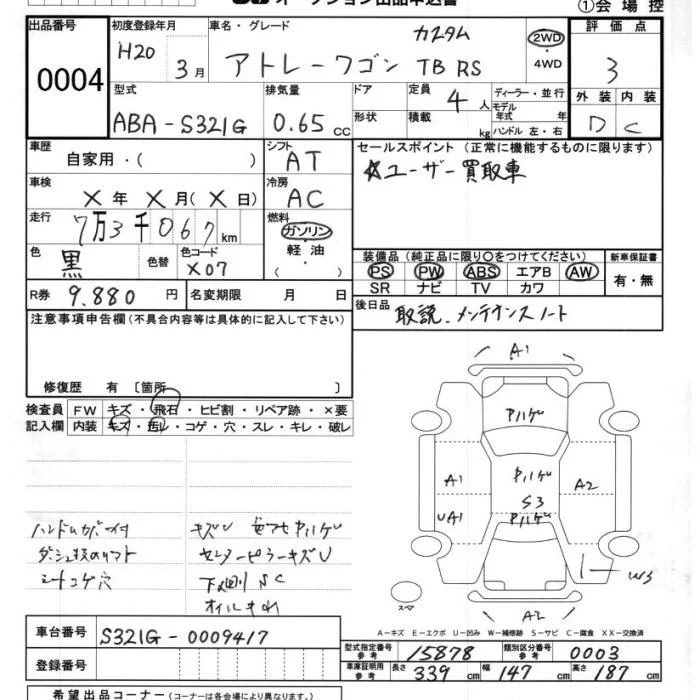 オークション出品申込書
①会場控
出品番号
0004
初度登録年月
H20 3月
車名・グレード
カスタム
アトレーワゴン TB RS
2WD
・
4WD
評価点
3
外装 内装
D C
型式
ABA-S321G
排気量
0.65 cc
ドア
形状
定員
4人
積載
kg
ディーラー・並行
モデル年式 年
ハンドル 左・右
車歴
自家用・( )
シフト
AT
セールスポイント (正常に機能するものに限ります)
☆ユーザー買取車
車検
X年 X月(X日)
冷房
AC
走行
7万3千067km
燃料
ガソリン
軽油
( )
色
黒
色替
色コード
X07
装備品 (純正品に限り○をつけてください)
PS PW ABS エアB AW
SR ナビ TV カワ
新車保証書
有・無
R券 9.880 円
名変期限 月 日
後日品 取説、メンテナンスノート
注意事項申告欄(不具合内容等は具体的に記入して下さい)
修復歴 有 〔箇所 〕
検査員記入欄
FW キズ・飛石・ヒビ割・リペア跡・×要
内装 キズ・汚レ・コゲ・穴・スレ・キレ・破レ
A1
A1
UA1
S3
A2
W3
A2
スペア
キズU
センターピラーキズU
シートコゲ穴
下廻りSC
A-キズ E-エクボ U-凹み W-補修跡 S-サビ C-腐食 XX-交換済
車台番号 S321G-0009417
登録番号
型式指定番号 参考 15878
類別区分番号 参考 0003
車庫証明用 参考 長さ 339 cm 幅 147 cm 高さ 187 cm
希望出品コーナー (コーナーは各会場により異なります。)